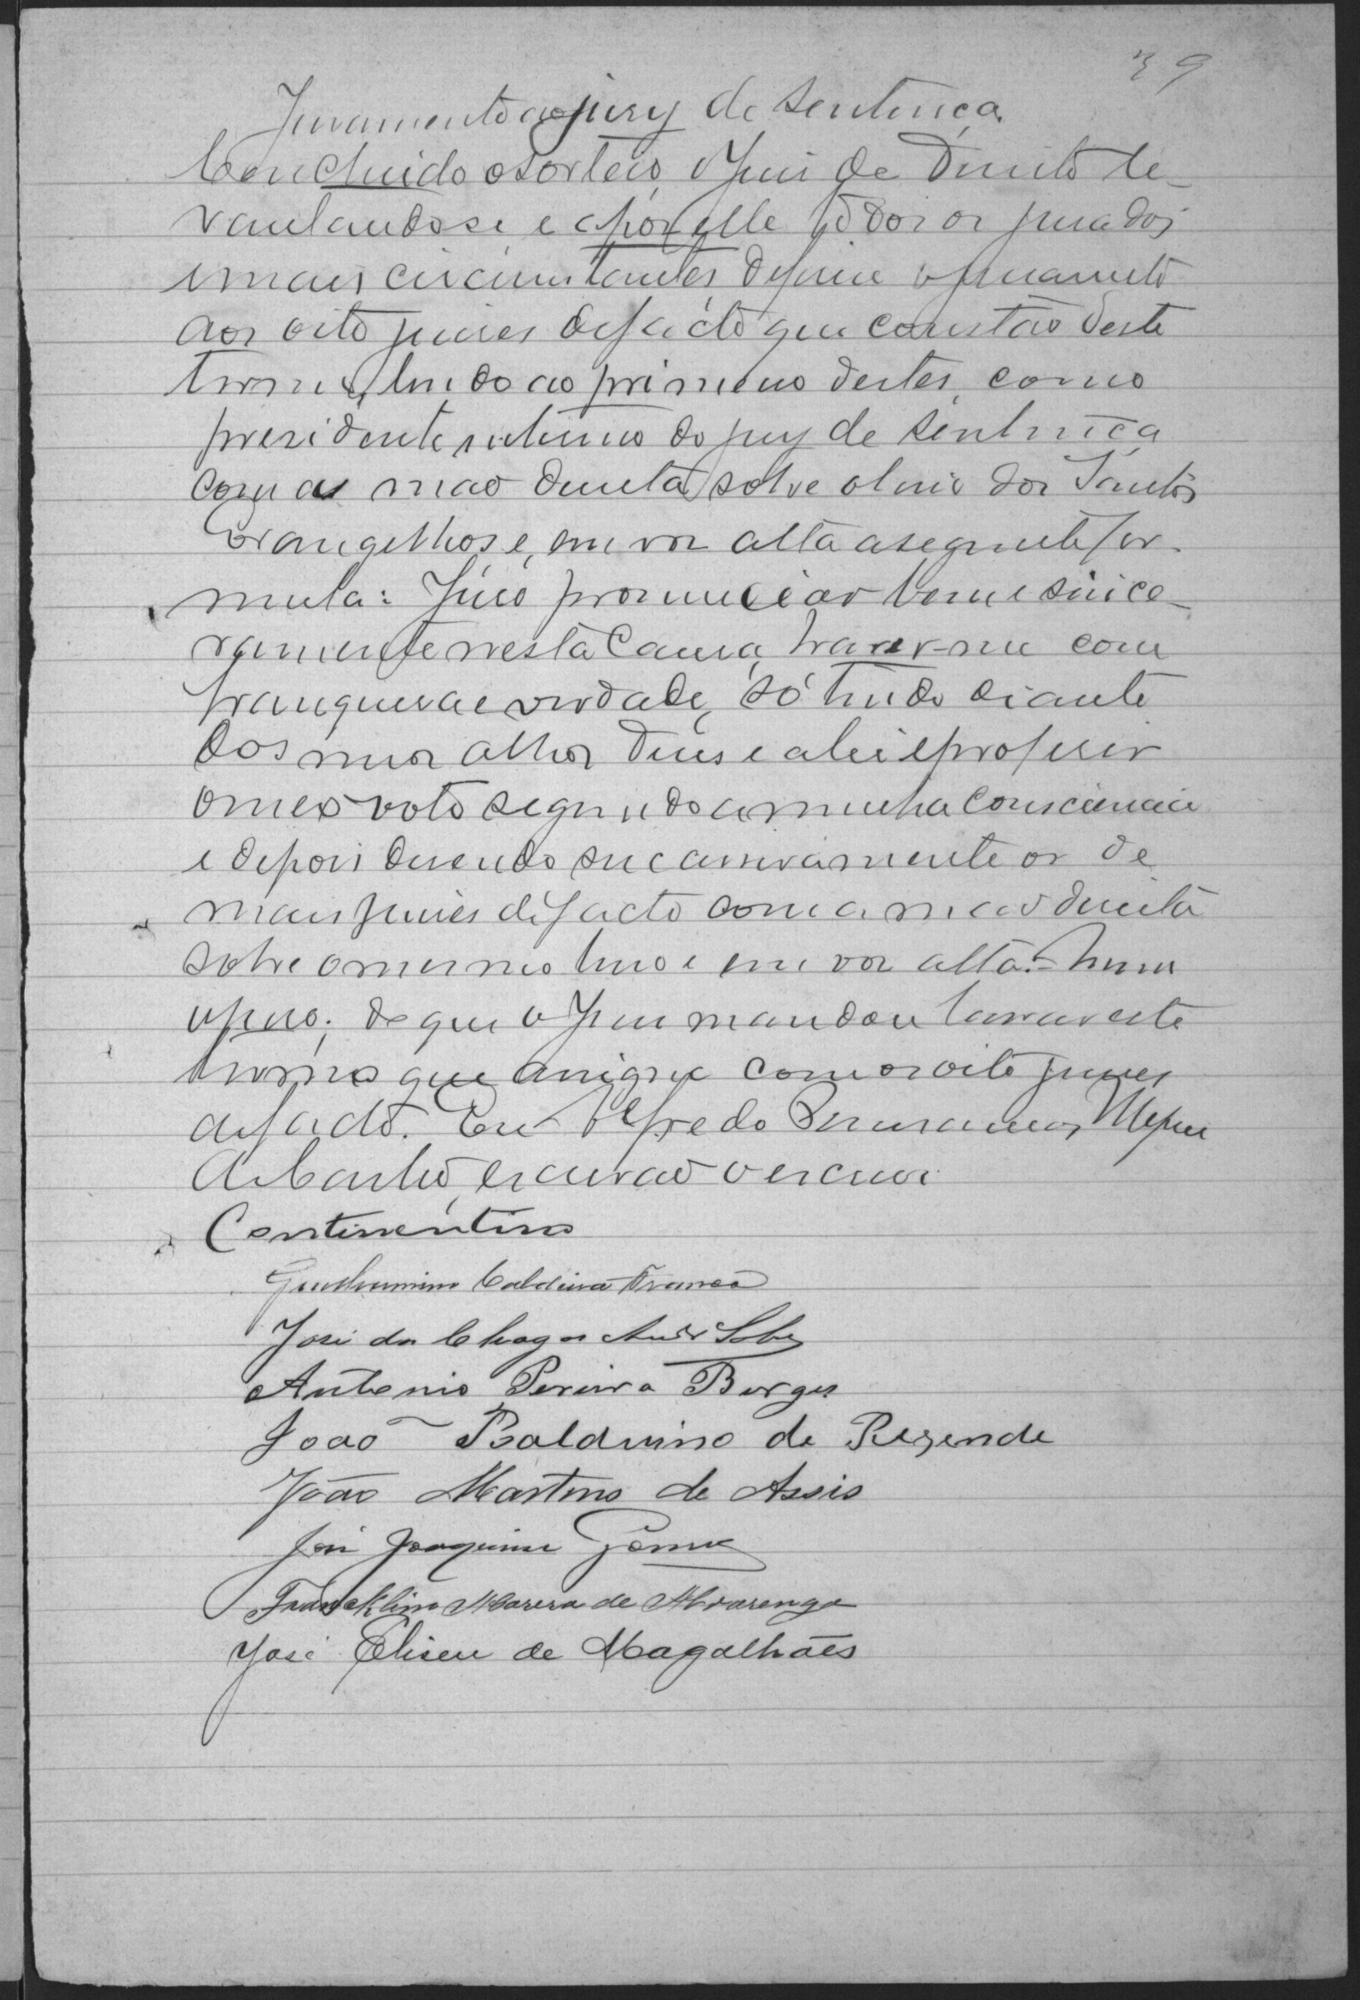 39
Juramento ao jury de sentença
Concluido o sorteio, o Juiz de Direito le-
vantando se e apoz elle todos os jurados
e mais circunstantes deferiu o juramento
aos oito juizes de facto que constão deste
termo, lendo ao primeiro destes, como
presidente interino do jury de sentença
com a mão direita sobre o livro dos Santos
Evangelhos e, em voz alta a seguinte for-
mula: Juro pronunciar bem e since-
ramente nesta causa, haver-me com
franqueza e verdade, só tendo diante
dos meus olhos Deus e a lei e proferir
o meu voto segundo a minha consciencia
e depois dizendo successivamente os de
mais juizes de facto com a mão direita
sobre o mesmo livro e em voz alta: - Assim
o juro; do que o Juiz mandou lavrar este
termo que assigna com os oito juizes
de facto. Eu Alfredo
de Castro, escrivão o escrevi
Continentino
Caldeira Franco
José das Chagas Andr
Antonio Pereira Borges
João Balduino de Rezende
João Martins de Assis
José Joaquim Gomes
Francklim Moreira de Alvarenga
José Eliseu de Magalhães